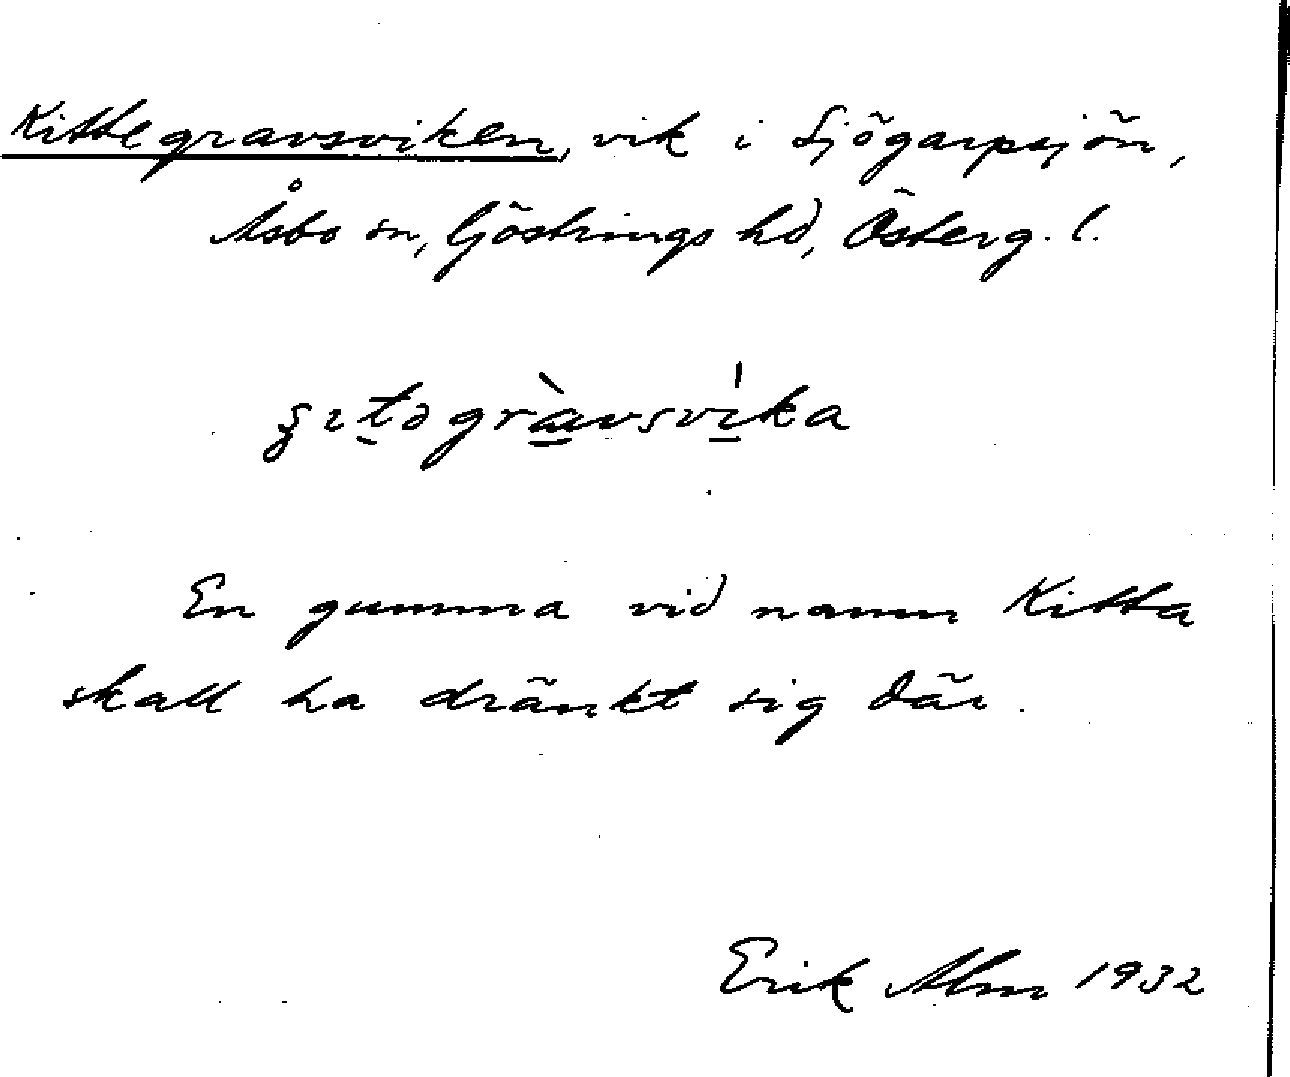 Kittegravsviken, vik i Sjögarpsjön,
Åsbo sn, Göstrings hd, Österg. l.
ʂɩt̠əgràvsvi̠ka
En gumma vid namn Kitta
skall ha dränkt sig där.
Erik Alm 1932